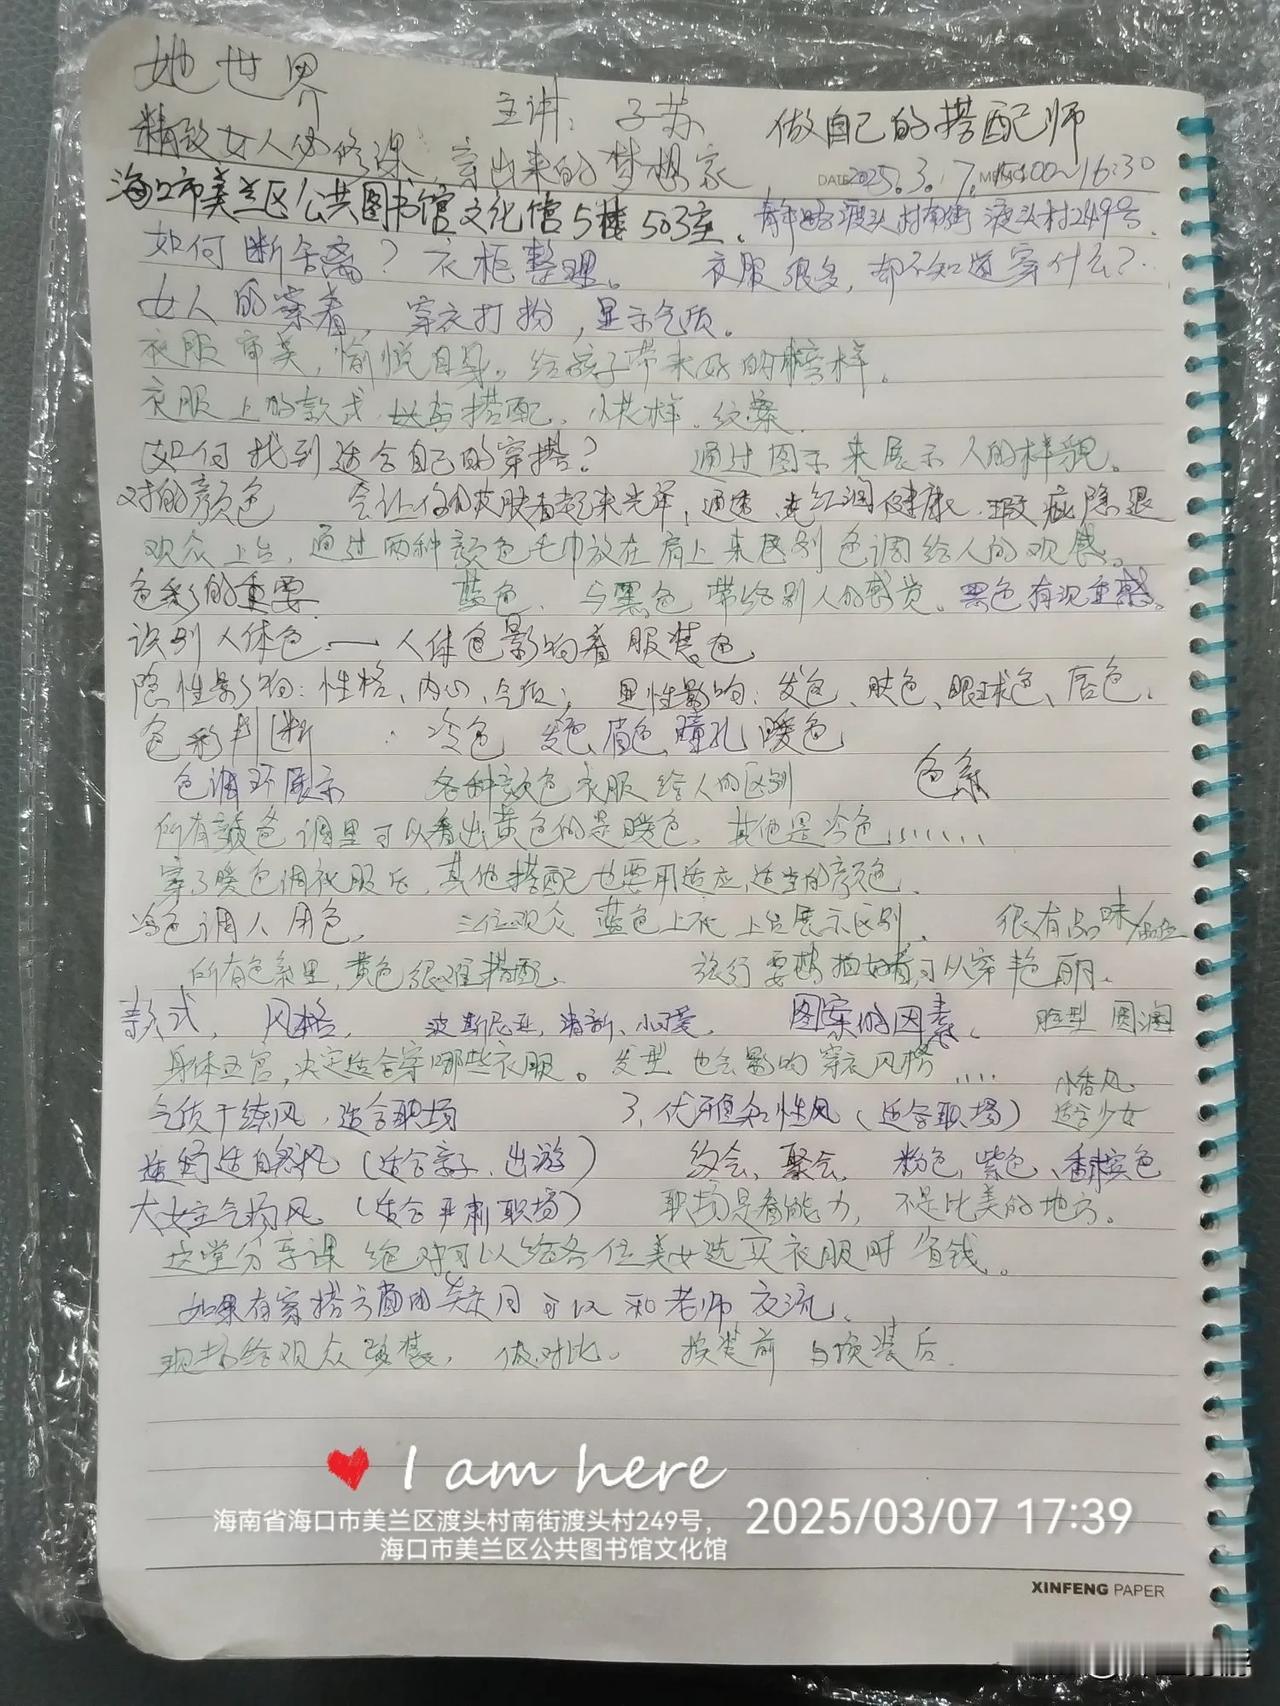 她世界
主讲:子苏 做自己的搭配师
精致女人必修课,穿出来的梦想家
DATE 2025.3.7. 00~16:30
海口市美兰区公共图书馆文化馆5楼503室、 渡头村南街渡头村249号.
如何断舍离?衣柜整理。 衣服很多,却不知道穿什么?
女人的穿着,穿衣打扮,显示气质。
衣服审美,愉悦自身。给孩子带来好的榜样。
衣服上的款式 搭配、小花样.纹案
如何找到适合自己的穿搭? 通过图示来展示人的样貌。
对的颜色 会让你的皮肤看起来光泽,通透,红润健康、瑕疵隐退
观众上台,通过两种颜色毛巾放在肩上来区别色调给人的观感。
色彩的重要 蓝色、与黑色带给别人的感觉。黑色有沉重感。
识别人体色 — 人体色影响着服装色
隐性影响:性格、内心、气质; 显性影响:发色、肤色、眼球色、唇色.
色彩判断 : 冷色 发色、眉色、瞳孔 暖色
色调环展示 各种颜色衣服给人的区别 色系
所有颜色调里可以看出黄色的是暖色.其他是冷色……
穿了暖色调衣服后,其他搭配也要用适应,适当的颜色.
冷色调人用色, 三位观众 蓝色上衣 上台展示区别. 很有品味/
所有色系里,黄色很难搭配. 旅行要想拍好看,可以穿艳丽.
款式, 风格, 波斯尼亚,清新、小可爱, 图案的因素、 脸型 圆润
身体五官,决定适合穿哪些衣服。发型也会影响穿衣风格....
小香风
气质干练风,适合职场 3.优雅知性风(适合职场) 适合少女
舒适自然风(适合亲子、出游) 约会、聚会, 粉色、紫色、香槟色
大女主气场风(适合严肃职场) 职场是看能力,不是比美的地方。
这堂分享课绝对可以给各位美女选买衣服时省钱。
如果有穿搭方面的 可以和老师交流.
现场给观众改装,做对比。 换装前与换装后.
I am here
海南省海口市美兰区渡头村南街渡头村249号,
海口市美兰区公共图书馆文化馆
2025/03/07 17:39
XINFENG PAPER